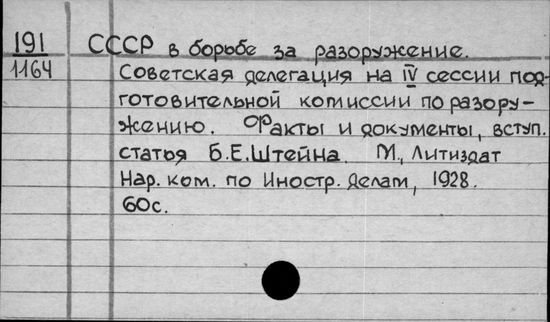 191
1164
СССР в борьбе за разоружение.
Советская делегация на IV сессии под-
готовительной комиссии по разору-
жению. Факты и документы, вступ.
статья Б.Е.Штейна. М., Литиздат
Нар. ком. по Иностр. делам, 1928.
60с.